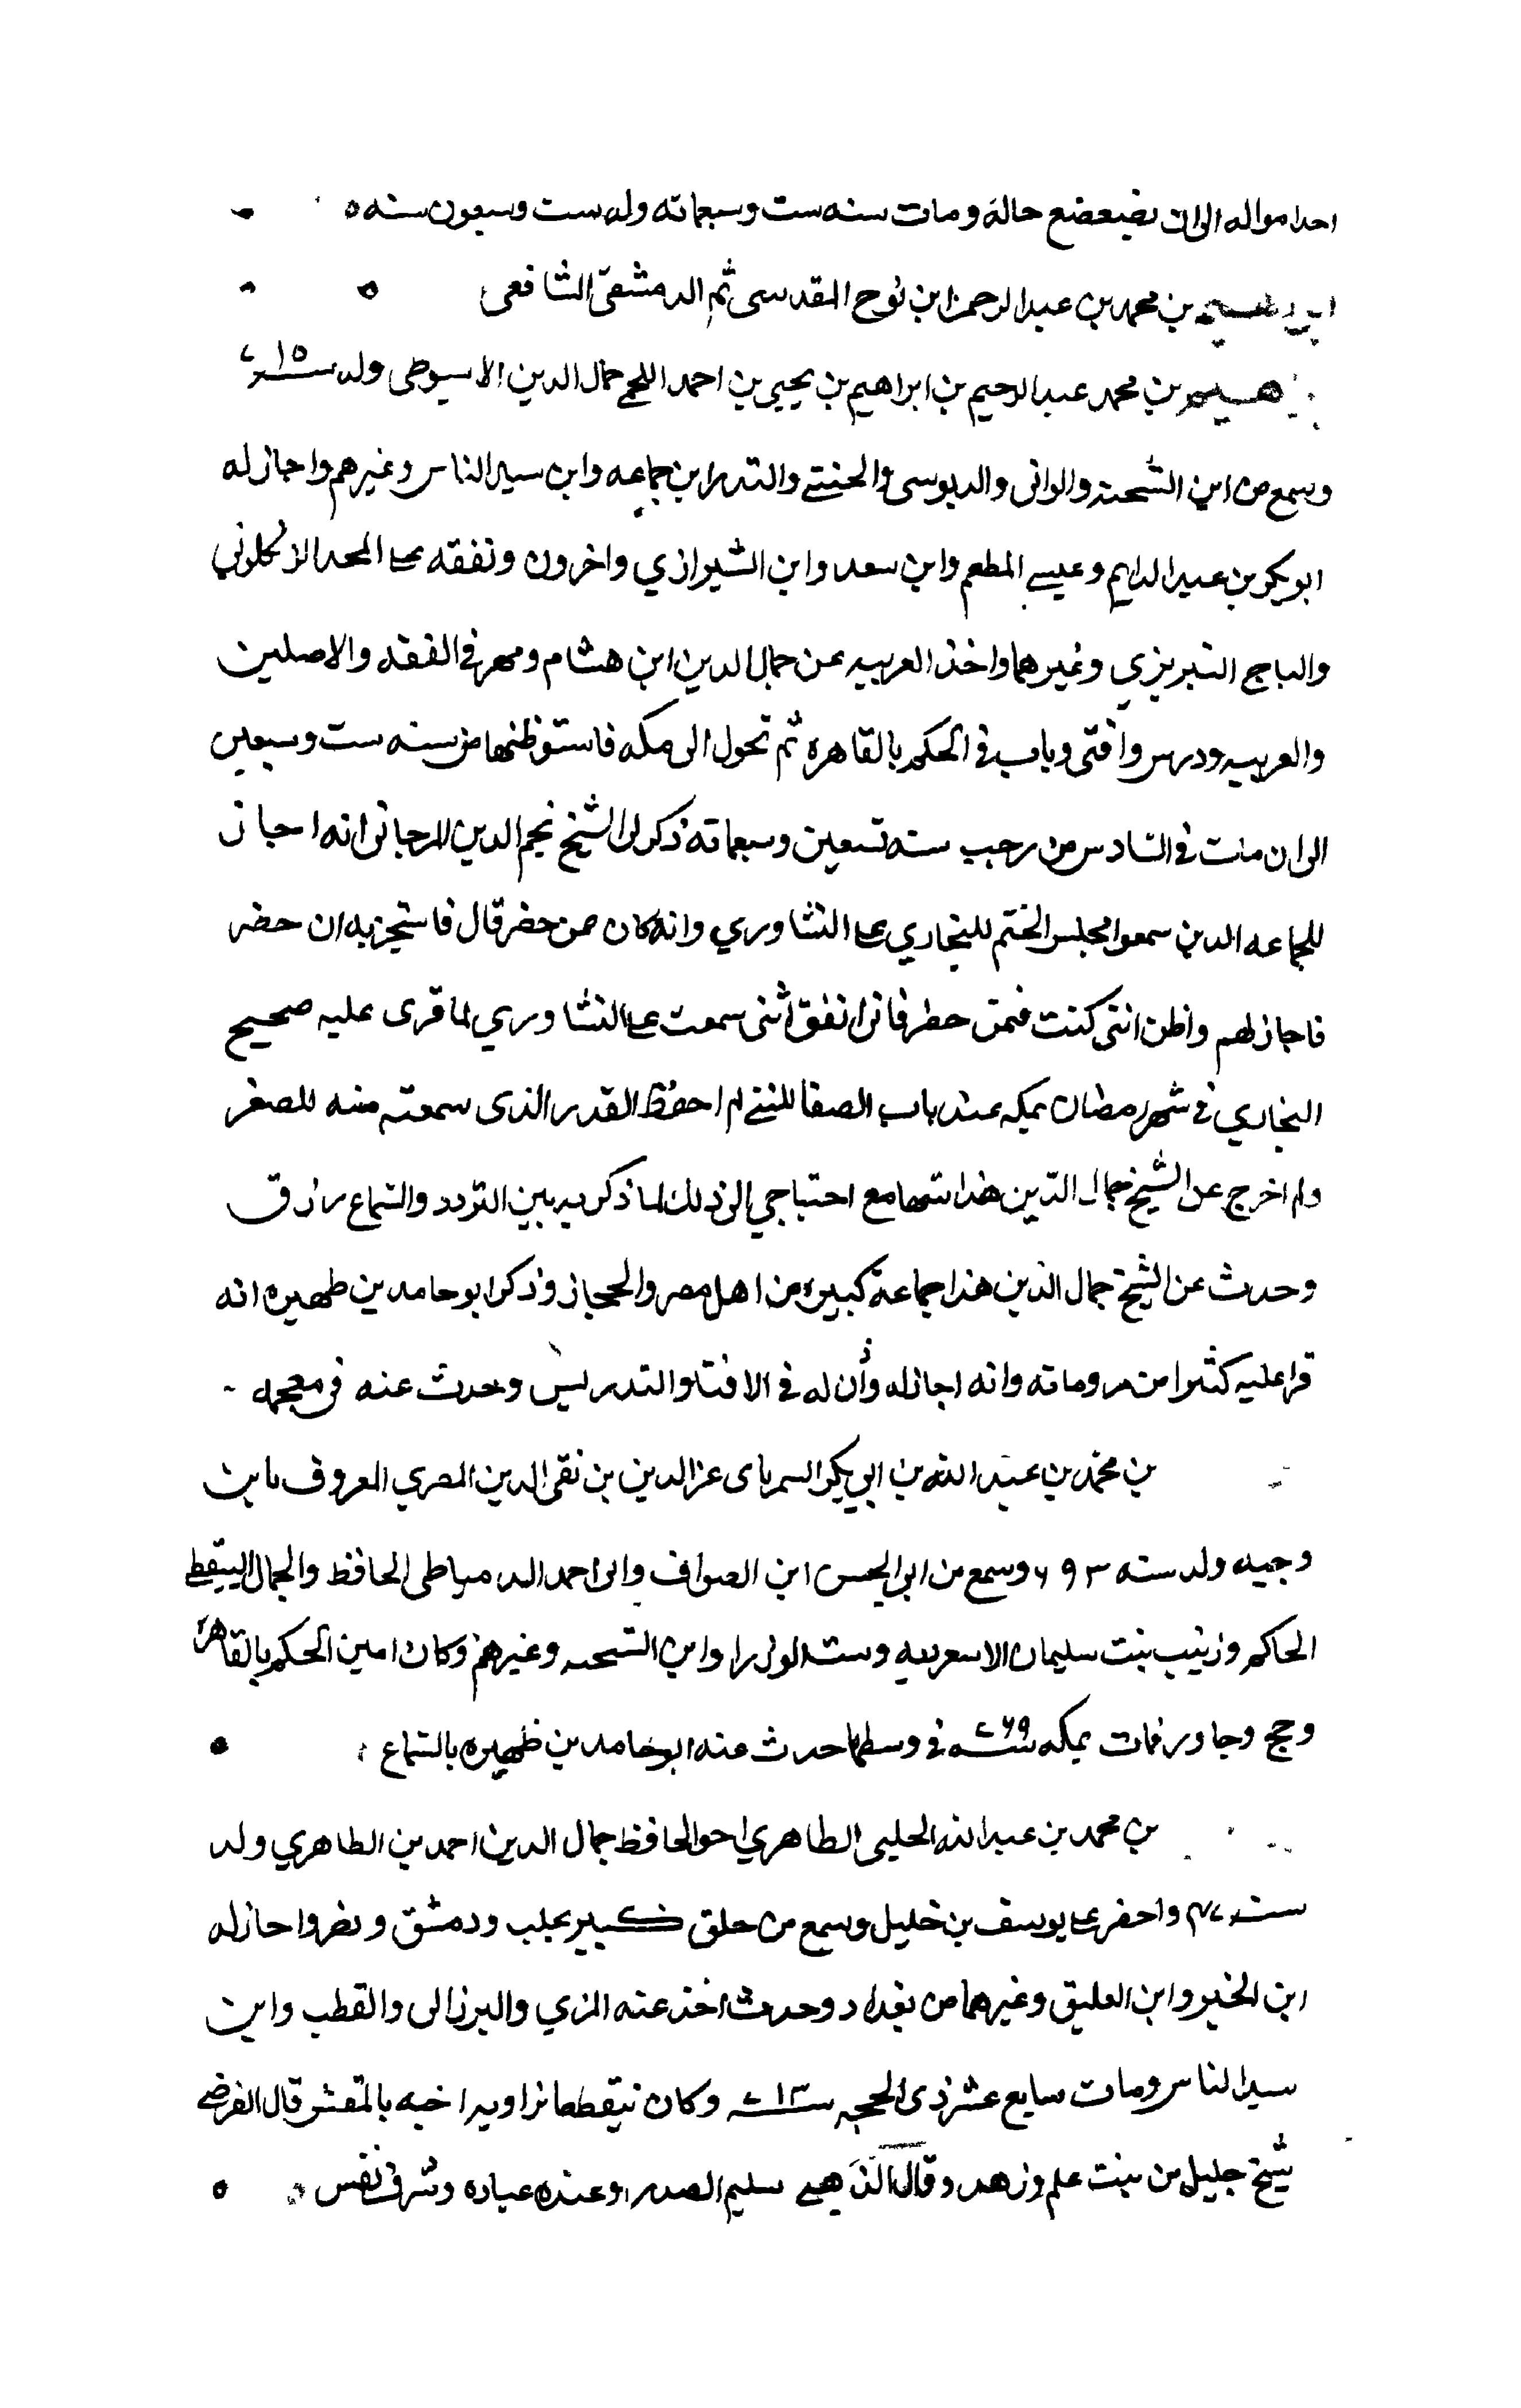 احد امواله الى ان تضعضع حاله ومات سنه ست وسبعمائه وله ست وسبعون سنه ه
بن محمد بن عبد الرحمن ابن نوح المقدسى ثم الدمشقى الشافعى ه
بن محمد عبد الرحيم بن ابراهيم بن يحيى بن احمد اللخمى جمال الدين الاسيوطى ولد سنة ٧١٥
وسمع من ابن الشحنه والوانى والدبوسى والختنى والبدر ابن جماعه وابن سيد الناس وغيرهم واجاز له
ابو بكر بن عبد الدايم وعيسى المطعم وابن سعد وابن الشيرازي واخرون وتفقه على المجد الزنكلوني
والتاج التبريزي وغيرهما واخذ العربيه عن جمال الدين ابن هشام ومهر فى الفقه والاصلين
والعربيه ودرس وافتى وناب فى الحكم بالقاهره ثم تحول الى مكه فاستوطنها من سنه ست وسبعين
الى ان مات فى السادس من رجب سنه تسعين وسبعمائه ذكر لى الشيخ نجم الدين المرجانى انه اجاز
للجماعه الدين سمعوا مجلس الختم للبخاري على النشاوري وانه كان ممن حضر قال فاستجزيه ان حضر
فاجاز لهم واظن اننى كنت فيمن حضر فانى اتفق اننى سمعت على النشاوري لما قرى عليه صحيح
البخاري فى شهر رمضان بمكه عند باب الصفا لكنى لم احفظ القدر الذى سمعته منه للصغر
ولم اخرج عن الشيخ جمال الدين هذا شيها مع احتياجي الى ذلك لما ذكر به بين التردد والسماع رزق
وحدث عن الشيخ جمال الدين هذا جماعة كبيره من اهل مصر والحجاز وذكر ابو حامد بن ظهيره انه
قرا عليه كثيرا من مروياته وانه اجاز له وأذن له فى الافتا والتدريس وحدث عنه فى معجمه
بن محمد بن عبد الله بن ابي بكر السرياى عز الدين بن تقى الدين المصري المعروف بابن
وجيه ولد سنه ٦٩٣ وسمع من ابى الحسن ابن الصواف وابى احمد الدمياطى الحافظ والجمال السقطى
الحاكم وزينب بنت سليمان الاسعرديه وست الوزرا وابن الشحنه وغيرهم وكان امين الحكم بالقاهرة
وحج وجاور فمات بمكه سنة ٧٦٩ فى وسطها حدث عنه ابو حامد بن ظهيره بالسماع
بن محمد بن عبد الله الحلبى الظاهري اخو الحافظ جمال الدين احمد بن الظاهري ولد
سنه ٦٤٧ واحضر على يوسف بن خليل وسمع من خلق كبير بحلب ودمشق ومصر واجاز له
ابن الخير وابن العليق وغيرهما من بغداد وحدث اخذ عنه المزي والبرزالى والقطب وابن
سيد الناس ومات سابع عشر ذى الحجه سنة ٧١٣ وكان منقطعا بزاوية اخيه بالمقس قال الفرضى
شيخ جليل من بيت علم وزهد وقال الذهبى سليم الصدر وعنده عباده وشرف نفس ه